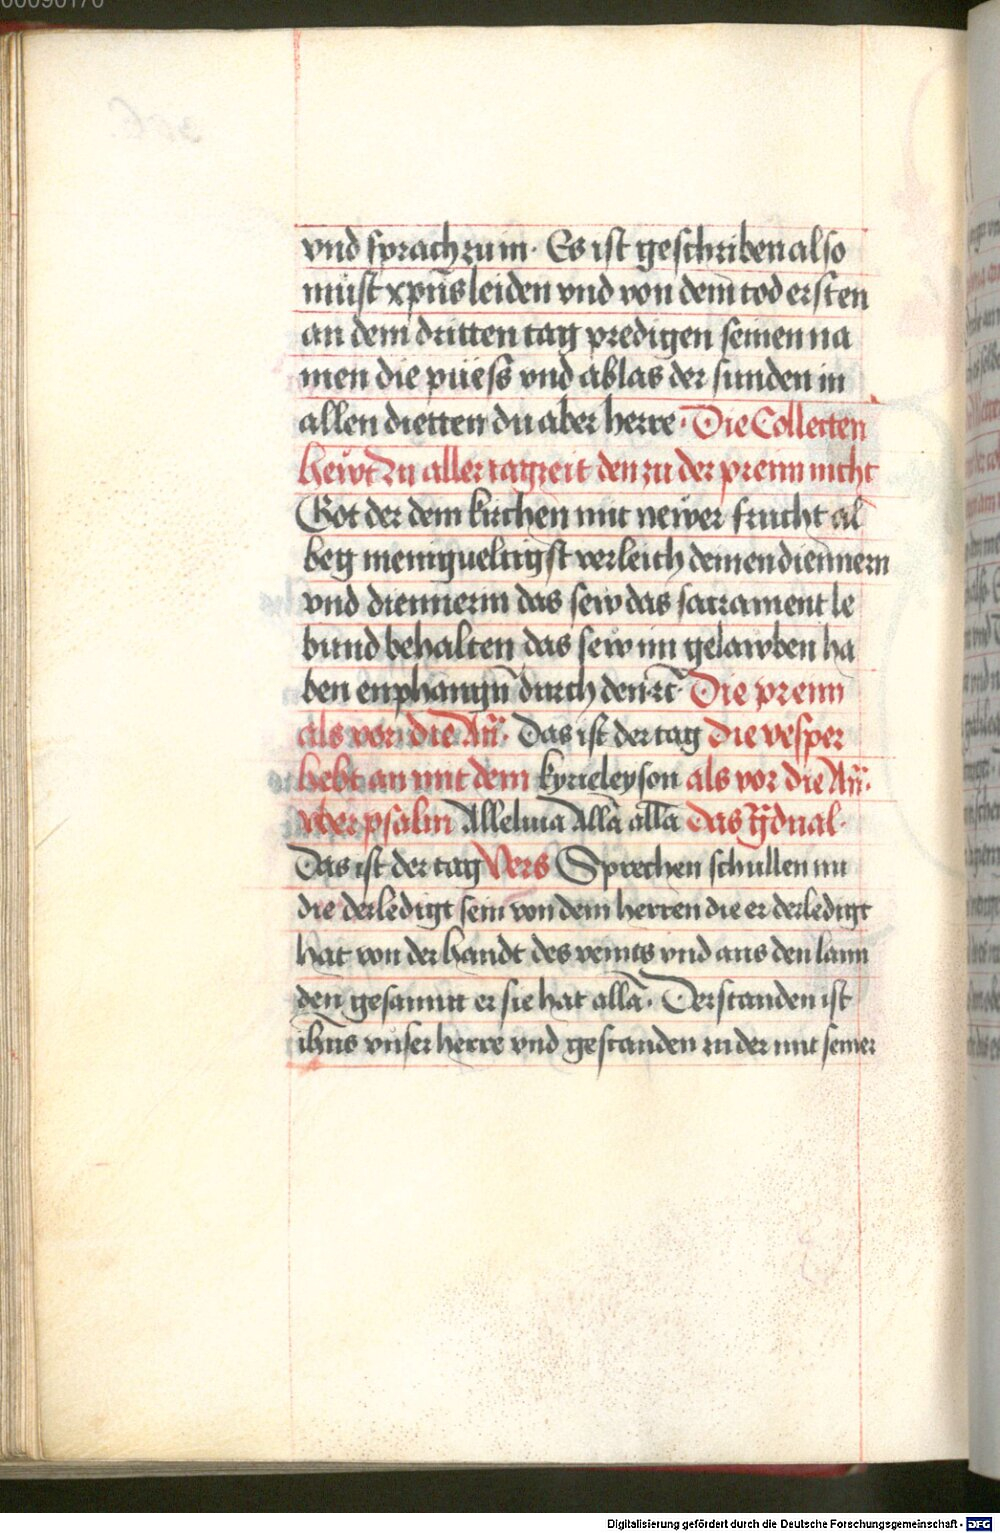 vnd sprach zu in · Es ist geschriben also
müist xpūs leiden vnd von dem tod ersten
an dem dritten tag predigen seinen na
men die püess vnd ablas der sunden in
allen dietten du aber herre · Die Collecten
hewt zu aller tagzeit den zu der preim nicht
Got der dem kirchen mit newer frucht al
beg menigueltigst verleich deinen diennern
vnd diennerin das sew das sacrament le
bund behalten das sew im gelawben ha
ben enphangn̄ durch den · ꝛc̄ · Die preim
als vor die An̄ · Das ist der tag Die vesper
hebt an mit dem kyrieleyson als vor die An̄ ·
vber psalm Alleluia Allā allā Das G̃dual ·
Das ist der tag Vers Sprechen schullen nu
die derledigt sein von dem herren die er derledigt
hat von der handt des veints vnd aus den lann
den gesamnt er sie hat allā · Derstanden ist
ih̄us vnser herre vnd gestanden zu der mit seiner
Digitalisierung gefördert durch die Deutsche Forschungsgemeinschaft - DFG